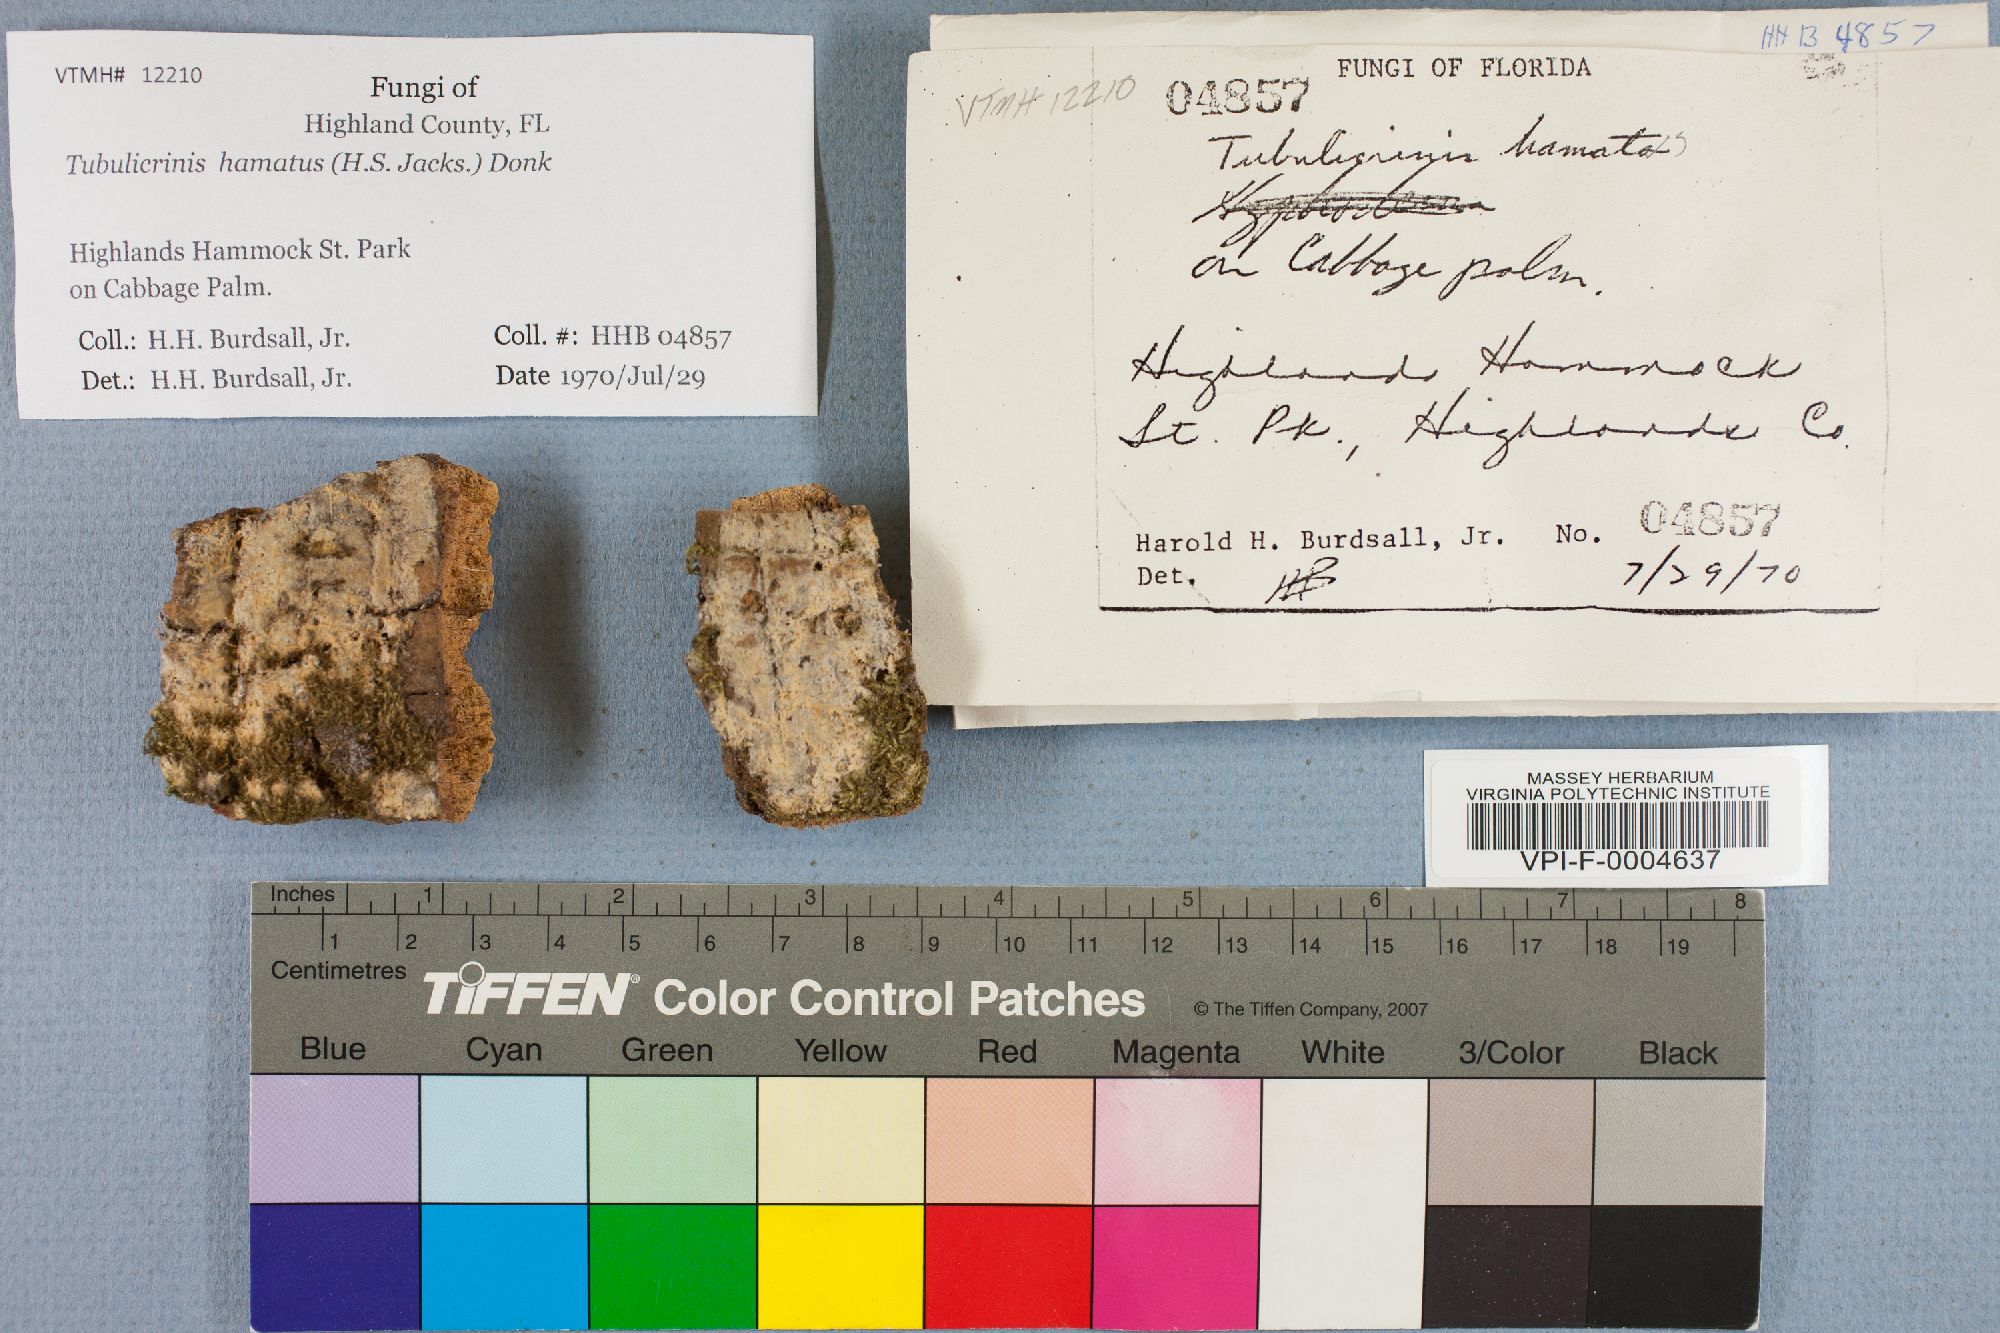 VTMH# 12210
Fungi of
Highland County, FL
Tubulicrinis hamatus (H.S. Jacks.) Donk
Highlands Hammock St. Park
on Cabbage Palm.
Coll.: H.H. Burdsall, Jr. Coll. #: HHB 04857
Det.: H.H. Burdsall, Jr. Date 1970/Jul/29
HHB 4857
FUNGI OF FLORIDA
VTMH 12210 04857
Tubulicrinis hamatus
on Cabbage palm.
Highlands Hammock
St. Pk., Highlands Co.
Harold H. Burdsall, Jr. No. 04857
Det. HHB 7/29/70
MASSEY HERBARIUM
VIRGINIA POLYTECHNIC INSTITUTE
VPI-F-0004637
Inches 1 2 3 4 5 6 7 8
1 2 3 4 5 6 7 8 9 10 11 12 13 14 15 16 17 18 19
Centimetres
TIFFEN® Color Control Patches © The Tiffen Company, 2007
Blue Cyan Green Yellow Red Magenta White 3/Color Black